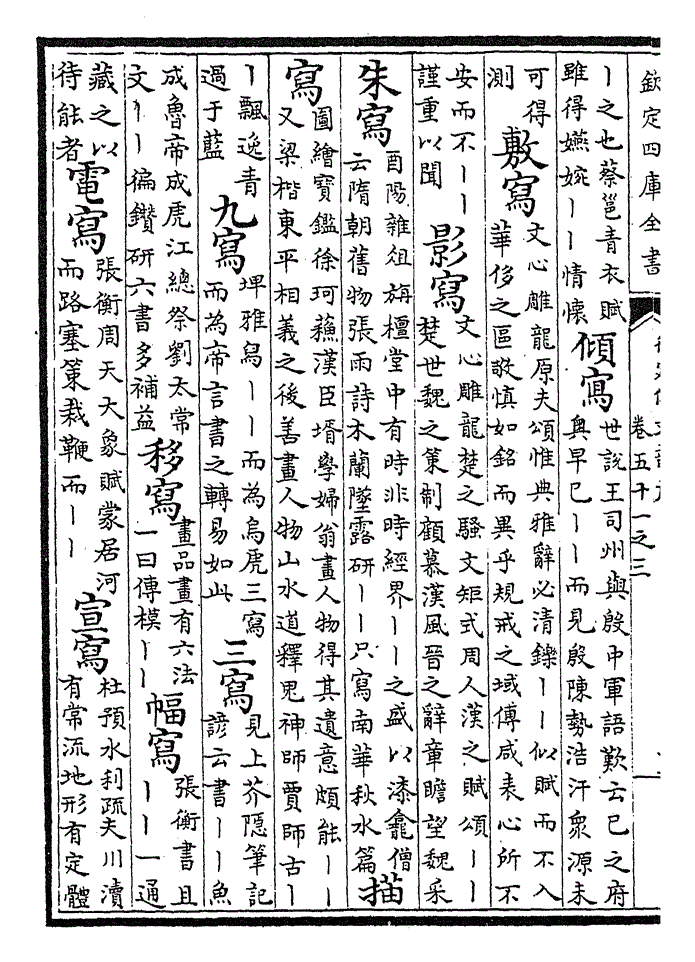 欽定四庫全書
卷五十一之三
丨之也蔡邕青衣賦
雖得嬿婉丨丨情懷
傾寫
世說王司州與殷中軍語歎云已之府
奥早已丨丨而見殷陳勢浩汗衆源未
可得
測
敷寫
文心雕龍原夫頌惟典雅辭必清鑠丨丨似賦而不入
華侈之區敬慎如銘而異乎規戒之域傅咸表心所不
安而不丨丨
謹重以聞
影寫
文心雕龍楚之騷文矩式周人漢之賦頌丨丨
楚世魏之策制顧慕漢風晉之辭章瞻望魏采
朱寫
酉陽雜俎旃檀堂中有時非時經界丨丨之盛以漆龕僧
云隋朝舊物張雨詩木蘭墜露研丨丨只寫南華秋水篇
描
寫
圖繪寶鑑徐珂蘓漢臣壻學婦翁畫人物得其遺意頗能丨丨
又梁楷東平相義之後善畫人物山水道釋鬼神師賈師古丨
丨飄逸青
過于藍
九寫
埤雅舄丨丨而為烏虎三寫
而為帝言書之轉易如此
三寫
見上芥隱筆記
諺云書丨丨魚
成魯帝成虎江總祭劉太常
文丨丨徧鑽研六書多補益
移寫
畫品畫有六法
一曰傳模丨丨
幅寫
張衡書且
丨丨一通
藏之以
待能者
電寫
張衡周天大象賦蒙居河
而路塞策裁鞭而丨丨
宣寫
杜預水利疏夫川瀆
有常流地形有定體